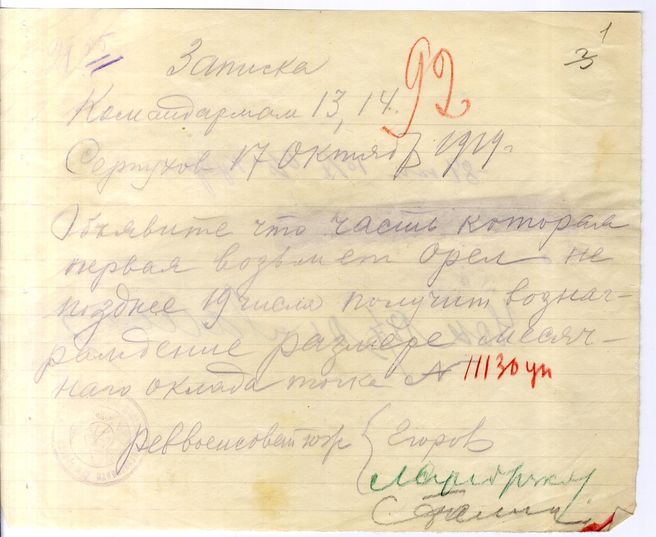 1
3
Записка
92
Командармам 13, 14.
Серпухов 17 Октября 1919г
Объявите что часть которая
первая возьмет Орел не
позднее 19 числа получит вознаг-
раждение размере месяч-
наго оклада точка N 11130 уп
реввоенсовет южр { Егоров
Сталин